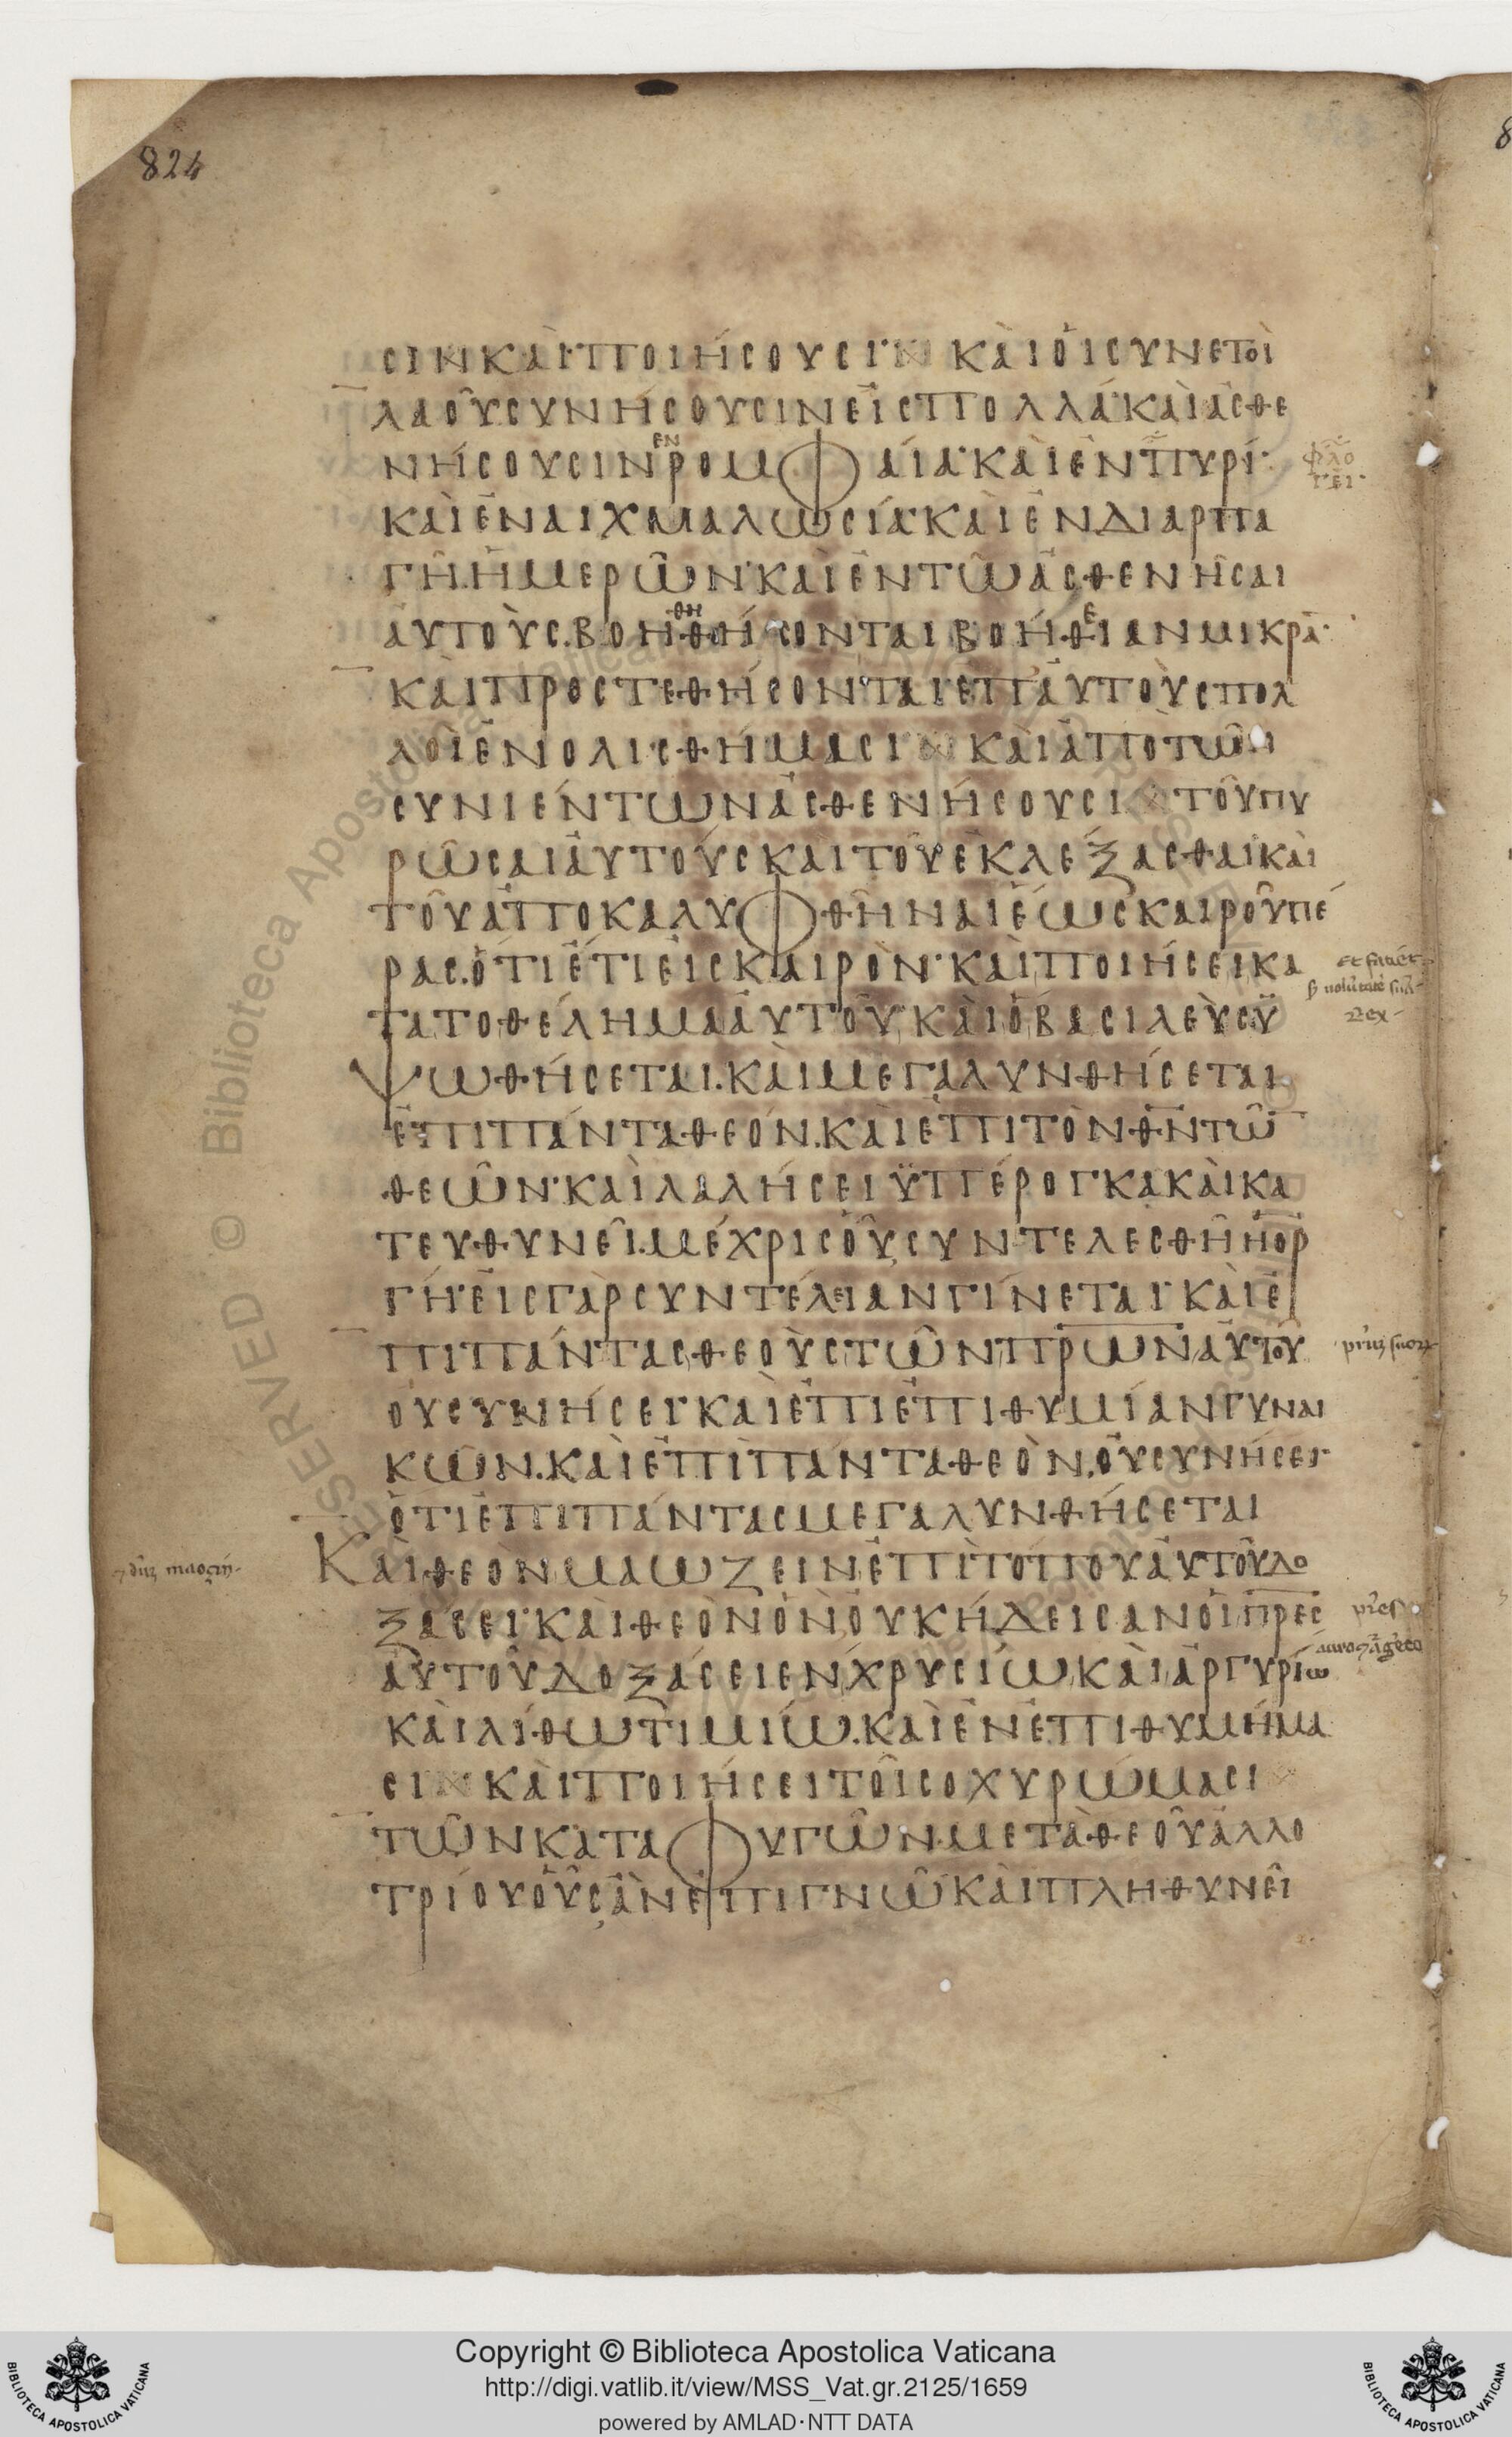 824
ϲιν κὰι ποιήϲουϲιν κὰι ὁι ϲυνετοὶ
λαοῦ ϲυνήϲουϲιν ἐιϲ πολλά· κὰι ἀϲθε
νήϲουϲιν ἐν ρομφαία· κὰι ἐν πυρί·
φλο
γεί·
κὰι ἐν αιχμαλωϲία· κὰι ἐν διαρπα
γῆ. ἡμερῶν· κὰι ἐν τῶ ἀϲθενῆϲαι
ἀυτοὺϲ. βοηθηθήϲονται βοήθειαν μικρὰ·
κὰι προϲτεθήϲονται ἐπ ἀυτοὺϲ πολ
λοὶ ἐν ολιϲθήμαϲιν κὰι ἀπὸ τῶν
ϲυνιέντων ἀϲθενήϲουϲιν τοῦ πυ
ρῶϲαι ἀυτούϲ κὰι τοῦ ἐκλέξαϲθαι κὰι
τοῦ ἀποκαλυφθῆναι ἕωϲ καιροῦ πέ
ραϲ. ὅτι ἔτι ἐιϲ καιρὸν· κὰι ποιήϲει κα
τα το θέλημα ἀυτοῦ· κὰι ὁ βαϲιλεὺϲ ϋ
Rex
ψωθήϲεται. κὰι μεγαλυνθήϲεται
ἐπι πάντα θεόν. κὰι ἐπι τὸν θ̅ν̅ τῶ̅
θεῶν· κὰι λαλήϲει ϋπέρογκα κὰι κα
τευθυνεῖ. μέχριϲ οὗ ϲυντελεϲθῆ ἡ ὀρ
γή· ἐιϲ γὰρ ϲυντέλειαν γίνεται· κὰι ἐ
πι πάνταϲ θεοὺϲ τῶν π̅ρ̅ω̅ν̅ ἀυτοῦ
ου ϲυνήϲει· κὰι ἐπι ἐπιθυμίαν γυναι
κῶν. κὰι ἐπι πάντα θεὸν. ὀυ ϲυνήϲει·
ὅτι ἐπι πάνταϲ μεγαλυνθήϲεται
Κὰι θεὸν μαωζειν ἐπὶ τόπου ἀυτοῦ δο
ξάϲει· κὰι θεὸν ὃν ὀυκ ήδειϲαν ὁι π̅ρ̅ε̅ϲ̅
ἀυτοῦ δοξάϲει εν χρυϲίω κὰι ἀργυρίω
κὰι λίθω τιμίω. κὰι ἐν ἐπιθυμήμα
ϲιν κὰι ποιήϲει τοῖϲ οχυρώμαϲι
τῶν καταφυγῶν. μετὰ θεοῦ ἀλλο
τρίου οὗϲ ἂν ἐπιγνῶ κὰι πληθυνεῖ
Copyright © Biblioteca Apostolica Vaticana
http://digi.vatlib.it/view/MSS_Vat.gr.2125/1659
powered by AMLAD·NTT DATA
BIBLIOTECA APOSTOLICA VATICANA
BIBLIOTECA APOSTOLICA VATICANA